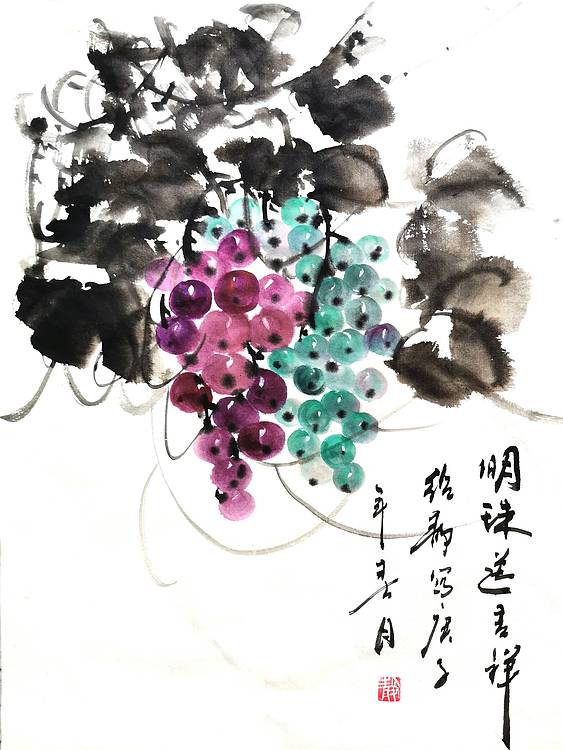 明珠送吉祥
静写庚子
年春月